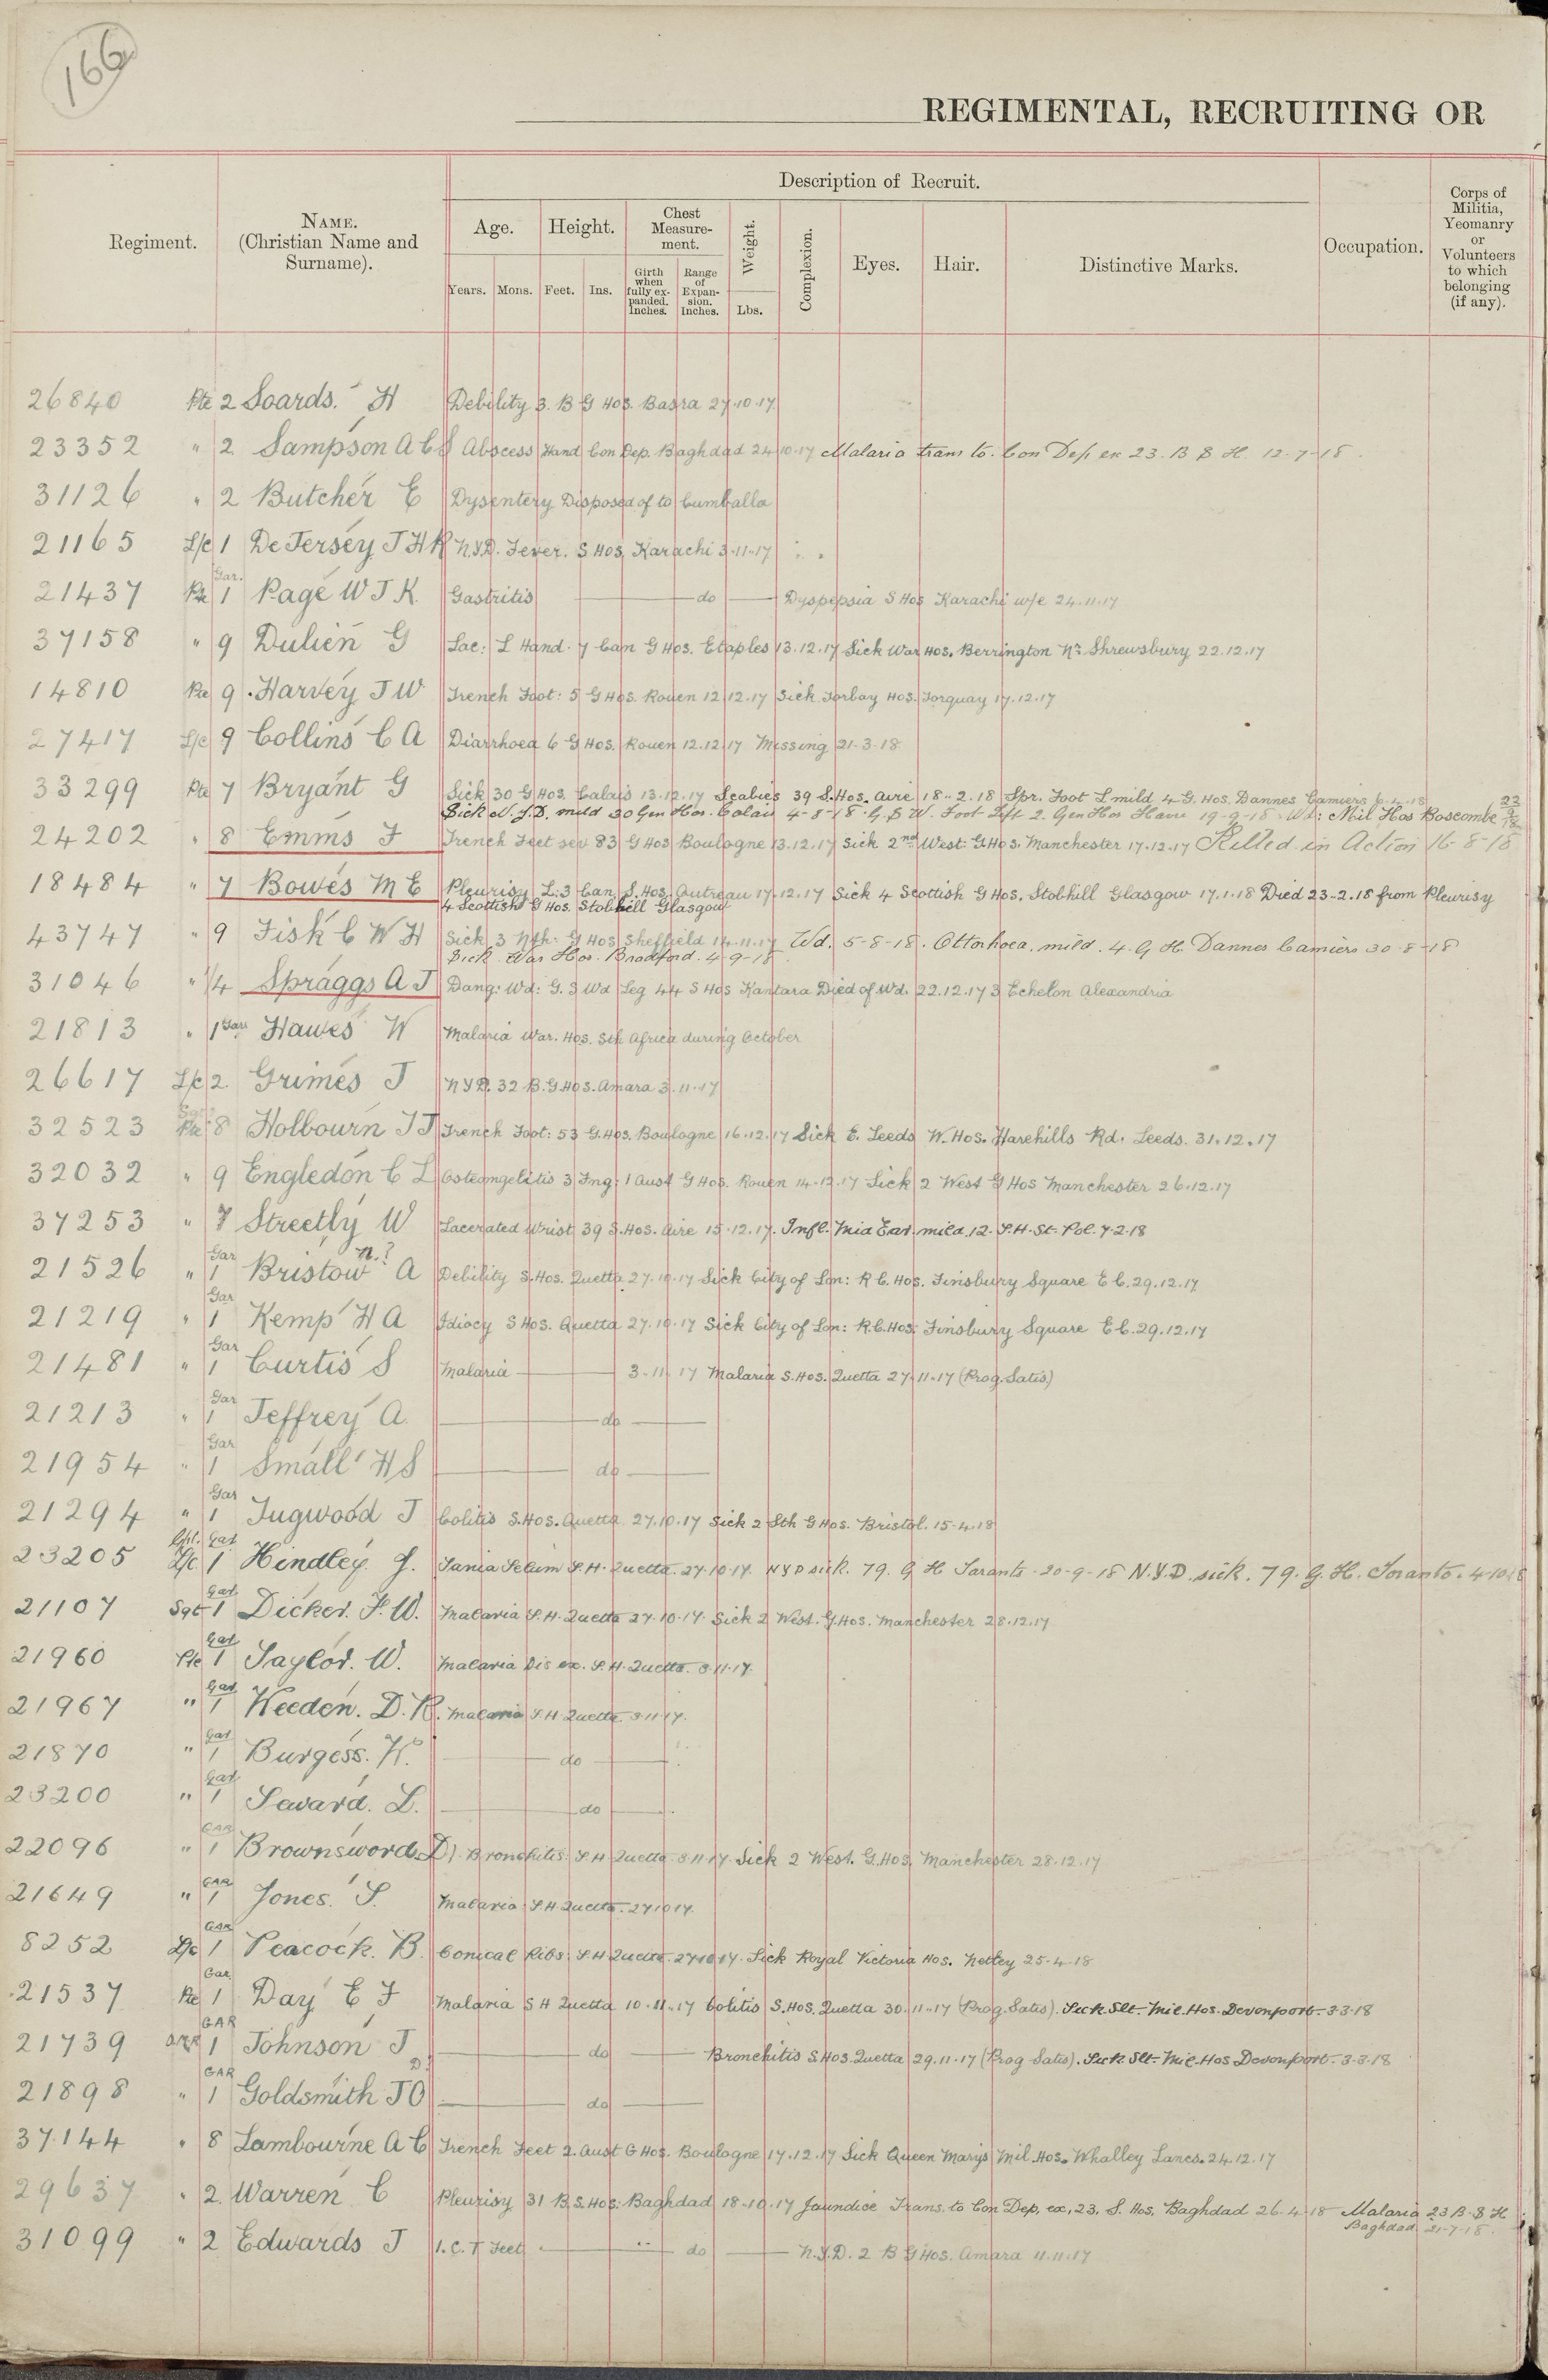 166
REGIMENTAL, RECRUITING OR
Regiment.
NAME.
(Christian Name and
Surname).
Description of Recruit.
Age.
Height.
Chest
Measure-
ment.
Weight.
Complexion.
Eyes.
Hair.
Distinctive Marks.
Occupation.
Corps of
Militia,
Yeomanry
or
Volunteers
to which
belonging
(if any).
Years.
Mons.
Feet.
Ins.
Girth
when
fully ex-
panded.
Inches.
Range
of
Expan-
sion.
Inches.
Lbs.
26840 Pte 2 Soards. H Debility 3. B G Hos. Basra 27.10.17
23352 " 2 Sampson A C S Abscess Hand Con Dep. Baghdad 24.10.17 Malaria trans to. Con Dep ex 23. B S H. 12-7-18.
31126 " 2 Butcher E Dysentery Disposed of to Cumballa
21165 L/c 1 De Jersey J H R N.Y.D. Fever. S Hos. Karachi 3.11.17
21437 Pte 1 Gar. Page W J K. Gastritis do Dyspepsia S Hos Karachi w/e 24.11.17
37158 " 9 Dulien G Lac: L Hand. 7 Can G Hos. Etaples 13.12.17 Sick War Hos. Berrington Nr. Shrewsbury 22.12.17
14810 Pte 9 Harvey J W Trench Foot: 5 G Hos. Rouen 12.12.17 Sick Torbay Hos. Torquay 17.12.17
27417 L/c 9 Collins C A Diarrhoea 6 G Hos. Rouen 12.12.17 Missing 21-3-18
33299 Pte 7 Bryant G Sick 30 G Hos. Calais 13.12.17 Scabies 39 S. Hos. Aire 18.2.18 Spr. Foot L mild 4 G. Hos. Dannes Camiers 6.4.18
Sick N.Y.D. mild 30 Gen Hos. Calais 4-8-18. G.S W. Foot Left 2. Gen Hos Havre 19-9-18. Wd: Mil Hos Boscombe 22/9/18
24202 " 8 Emms F Trench Feet sev 83 G Hos Boulogne 13.12.17 Sick 2nd West: G Hos. Manchester 17.12.17 Killed in Action 16-8-18
18484 " 7 Bowes M E Pleurisy L: 3 Can S. Hos. Outreau 17.12.17 Sick 4 Scottish G Hos. Stobhill Glasgow 17.1.18 Died 23.2.18 from Pleurisy
4 Scottish G Hos. Stobhill Glasgow
43747 " 9 Fisk C W H Sick 3 Nth: G Hos Sheffield 14.11.17 Wd. 5-8-18. Ottorhoea. mild. 4. G H. Dannes Camiers 30-8-18
Sick. War Hos. Bradford. 4-9-18
31046 " 1/4 Spraggs A J Dang: Wd: G.S Wd Leg 44 S Hos Kantara Died of Wd. 22.12.17 3 Echelon Alexandria
21813 " 1 Gar Hawes W Malaria War. Hos. Sth Africa during October
26617 L/c 2 Grimes J N Y D. 32 B. G. Hos. Amara 3.11.17
32523 Pte 8 Holbourn T J Trench Foot: 53 G. Hos. Boulogne 16.12.17 Sick E. Leeds W. Hos. Harehills Rd. Leeds. 31.12.17
32032 " 9 Engledon C L Osteomyelitis 3 Fng: 1 Aust G Hos. Rouen 14.12.17 Sick 2 West G Hos Manchester 26.12.17
37253 " 7 Streetly W Lacerated Wrist 39 S. Hos. Aire 15.12.17. Infl. Mid Ear. mild. 12. S.H. St. Pol. 7.2.18
21526 " 1 Gar Bristow n.? A Debility S. Hos. Quetta 27.10.17 Sick City of Lon: R C. Hos. Finsbury Square E C. 29.12.17
21219 " 1 Gar Kemp H A Idiocy S Hos. Quetta 27.10.17 Sick City of Lon: R.C. Hos: Finsbury Square E C. 29.12.17
21481 " 1 Gar Curtis S Malaria 3.11.17 Malaria S. Hos. Quetta 27.11.17 (Prog. Satis)
21213 " 1 Gar Jeffrey A. do
21954 " 1 Gar Small H S do
21294 " 1 Gar Tugwood J Colitis S. Hos. Quetta 27.10.17 Sick 2 Sth G Hos. Bristol. 15.4.18
23205 Cpl. L/c 1 Gar Hindley. J. Tania Selum S.H. Quetta. 27.10.17. N Y D sick. 79. G H Taranto. 20-9-18 N.Y.D. sick. 79. G. H. Taranto. 4-10-18
21107 Sgt 1 Gar Dicker. F. W. Malaria S.H. Quetta 27.10.17. Sick 2 West. G. Hos. Manchester 28.12.17
21960 Pte 1 Gar Taylor. W. Malaria Dis ex. S.H. Quetta. 3.11.17.
21967 " 1 Gar Weeden. D. R. Malaria S.H. Quetta 3.11.17.
21870 " 1 Gar Burgess. W. do
23200 " 1 Gar Seward. L. do
22096 " 1 GAR Brownsword. D. Bronchitis. S.H. Quetta 3.11.17. Sick 2 West. G. Hos. Manchester 28.12.17
21649 " 1 GAR Jones. S. Malaria S.H. Quetta. 27.10.17.
8252 L/c 1 GAR Peacock. B. Conical Ribs: S.H Quetta. 27.10.17. Sick Royal Victoria Hos. Netley 25.4.18
21537 Pte 1 Gar. Day E F Malaria S H Quetta 10.11.17 Colitis S. Hos. Quetta 30.11.17 (Prog. Satis). Sick Slt. Mil. Hos. Devonport. 3.3.18
21739 1 GAR Johnson J do Bronchitis S. Hos. Quetta 29.11.17 (Prog Satis). Sick Slt. Mil. Hos Devonport. 3.3.18
21898 " 1 GAR Goldsmith J O D? do
37144 " 8 Lambourne A C Trench Feet 2. Aust G Hos. Boulogne 17.12.17 Sick Queen Marys Mil. Hos. Whalley Lancs. 24.12.17
29637 " 2 Warren C Pleurisy 31 B. S. Hos: Baghdad 18.10.17 Jaundice Trans. to Con Dep. ex. 23. S. Hos. Baghdad 26.4.18 Malaria 23 B. S H
Baghdad 21-7-18.
31099 " 2 Edwards J I. C. T Feet do N.Y.D. 2 B G Hos. Amara 11.11.17